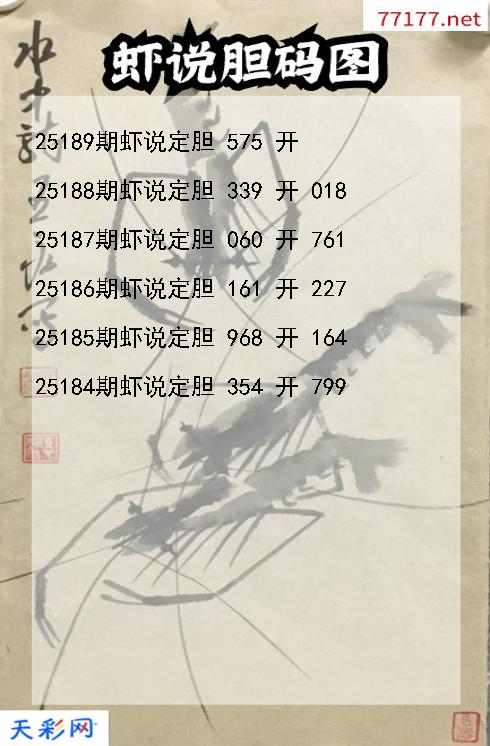 77177.net
虾说胆码图
25189期虾说定胆 575 开
25188期虾说定胆 339 开 018
25187期虾说定胆 060 开 761
25186期虾说定胆 161 开 227
25185期虾说定胆 968 开 164
25184期虾说定胆 354 开 799
天彩网